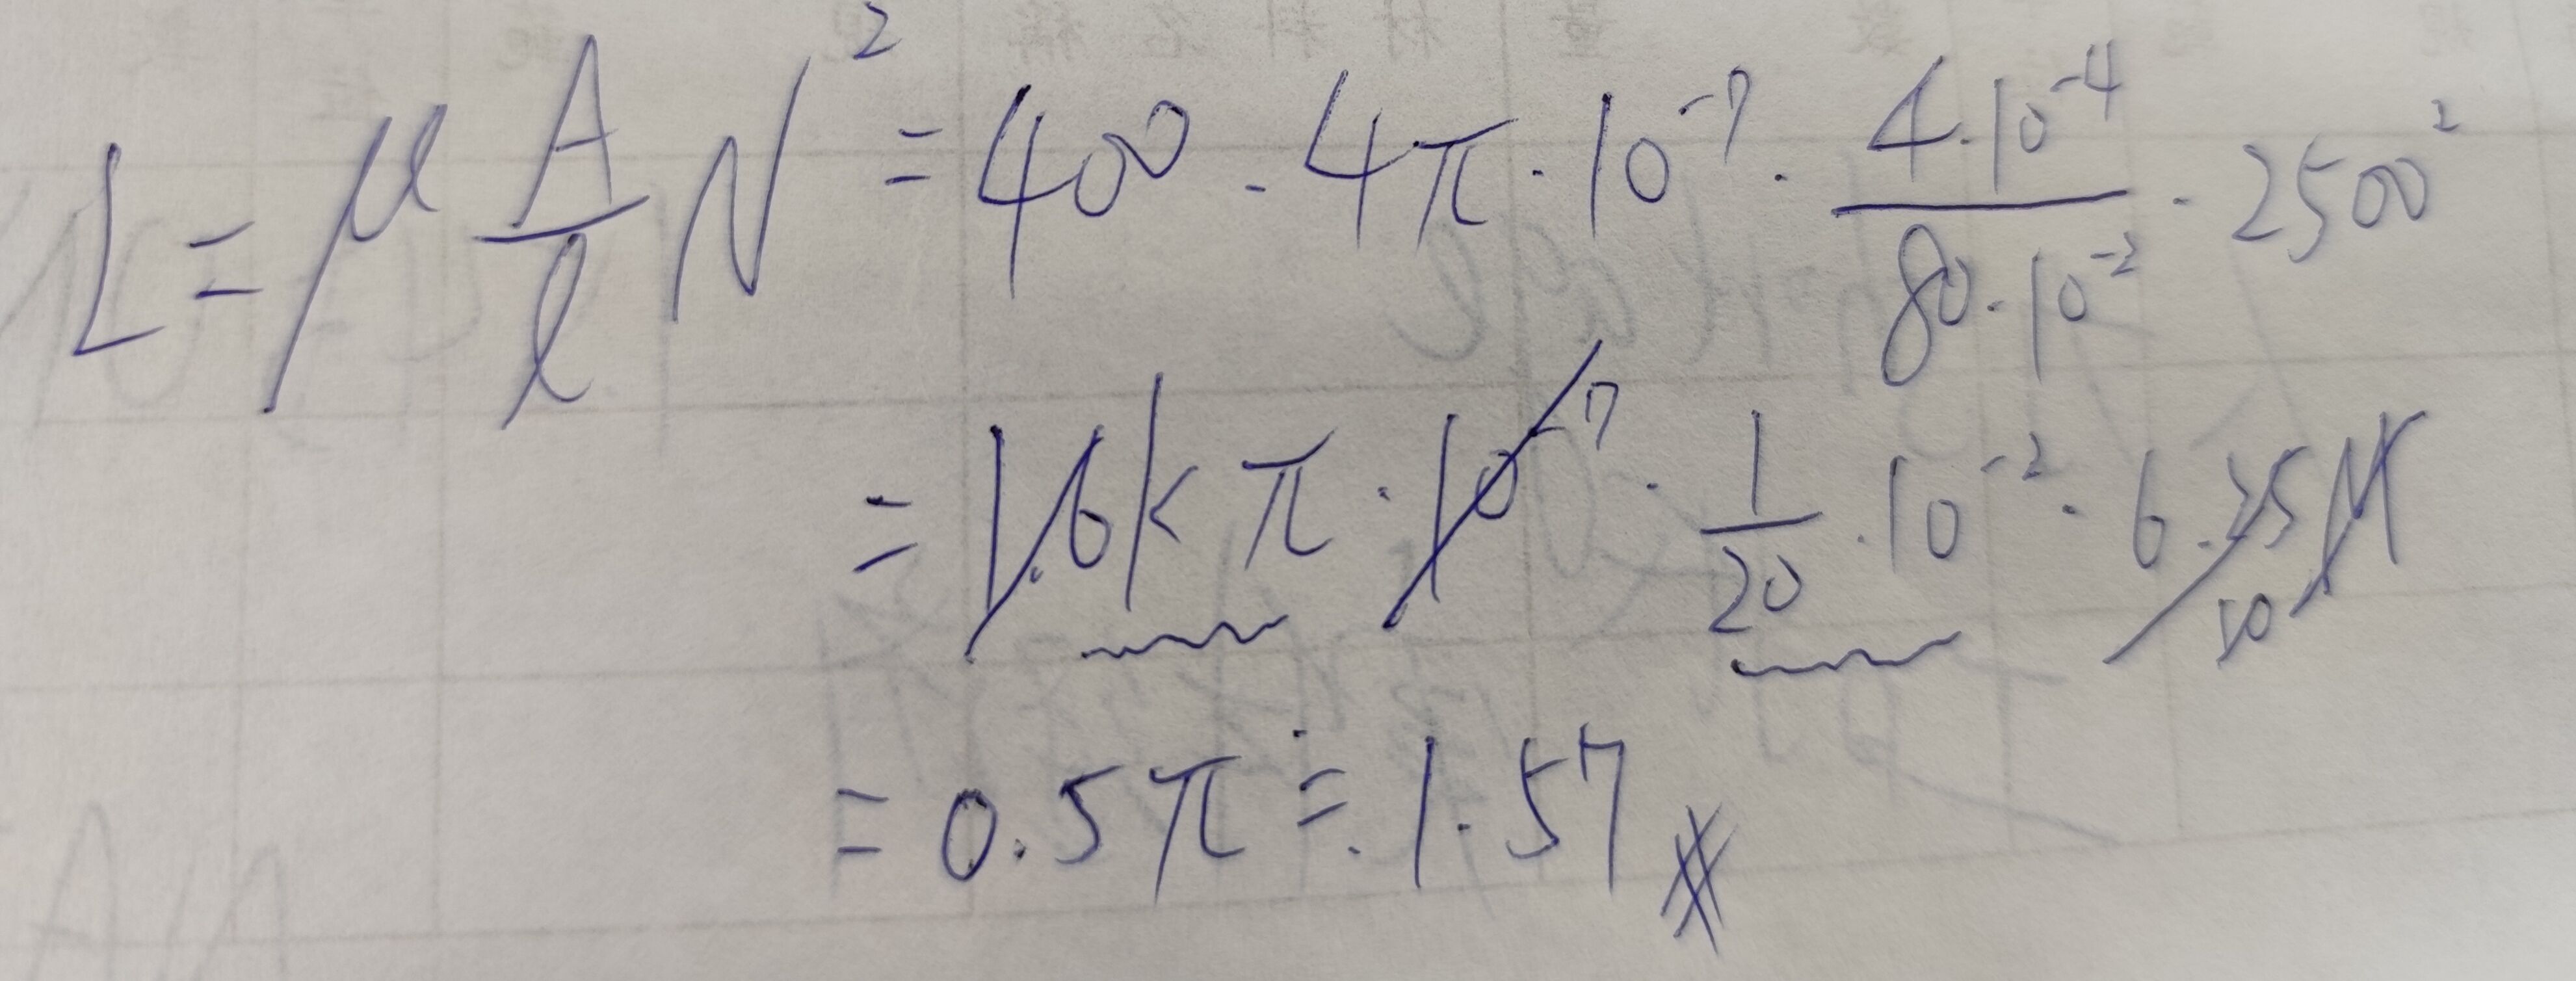 L = μ A/l N² = 400 · 4π · 10⁻⁷ · (4·10⁻⁴)/(80·10⁻²) · 2500²
= 1.6k π · 10⁻⁷ · 1/20 · 10⁻² · 6.25M 10
= 0.5π ≒ 1.57